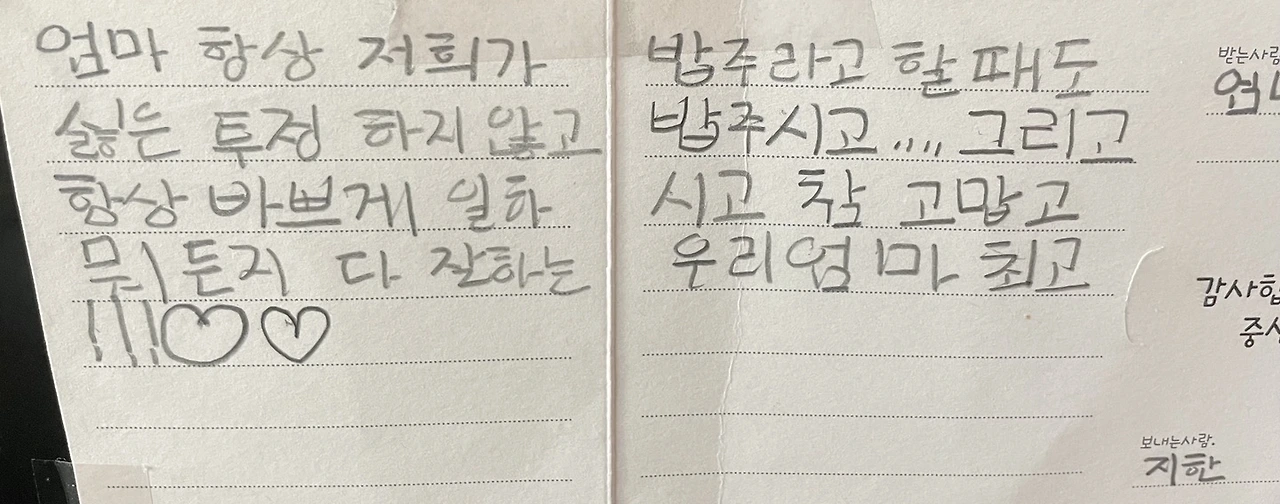 엄마 항상 저희가 밥주라고 할때도
싫은 투정 하지 않고 밥주시고.... 그리고
항상 바쁘게 일하시고 참 고맙고
뮈든지 다 잘하는 우리엄마 최고
!!!♡♡
받는사람
보내는사람.
지한